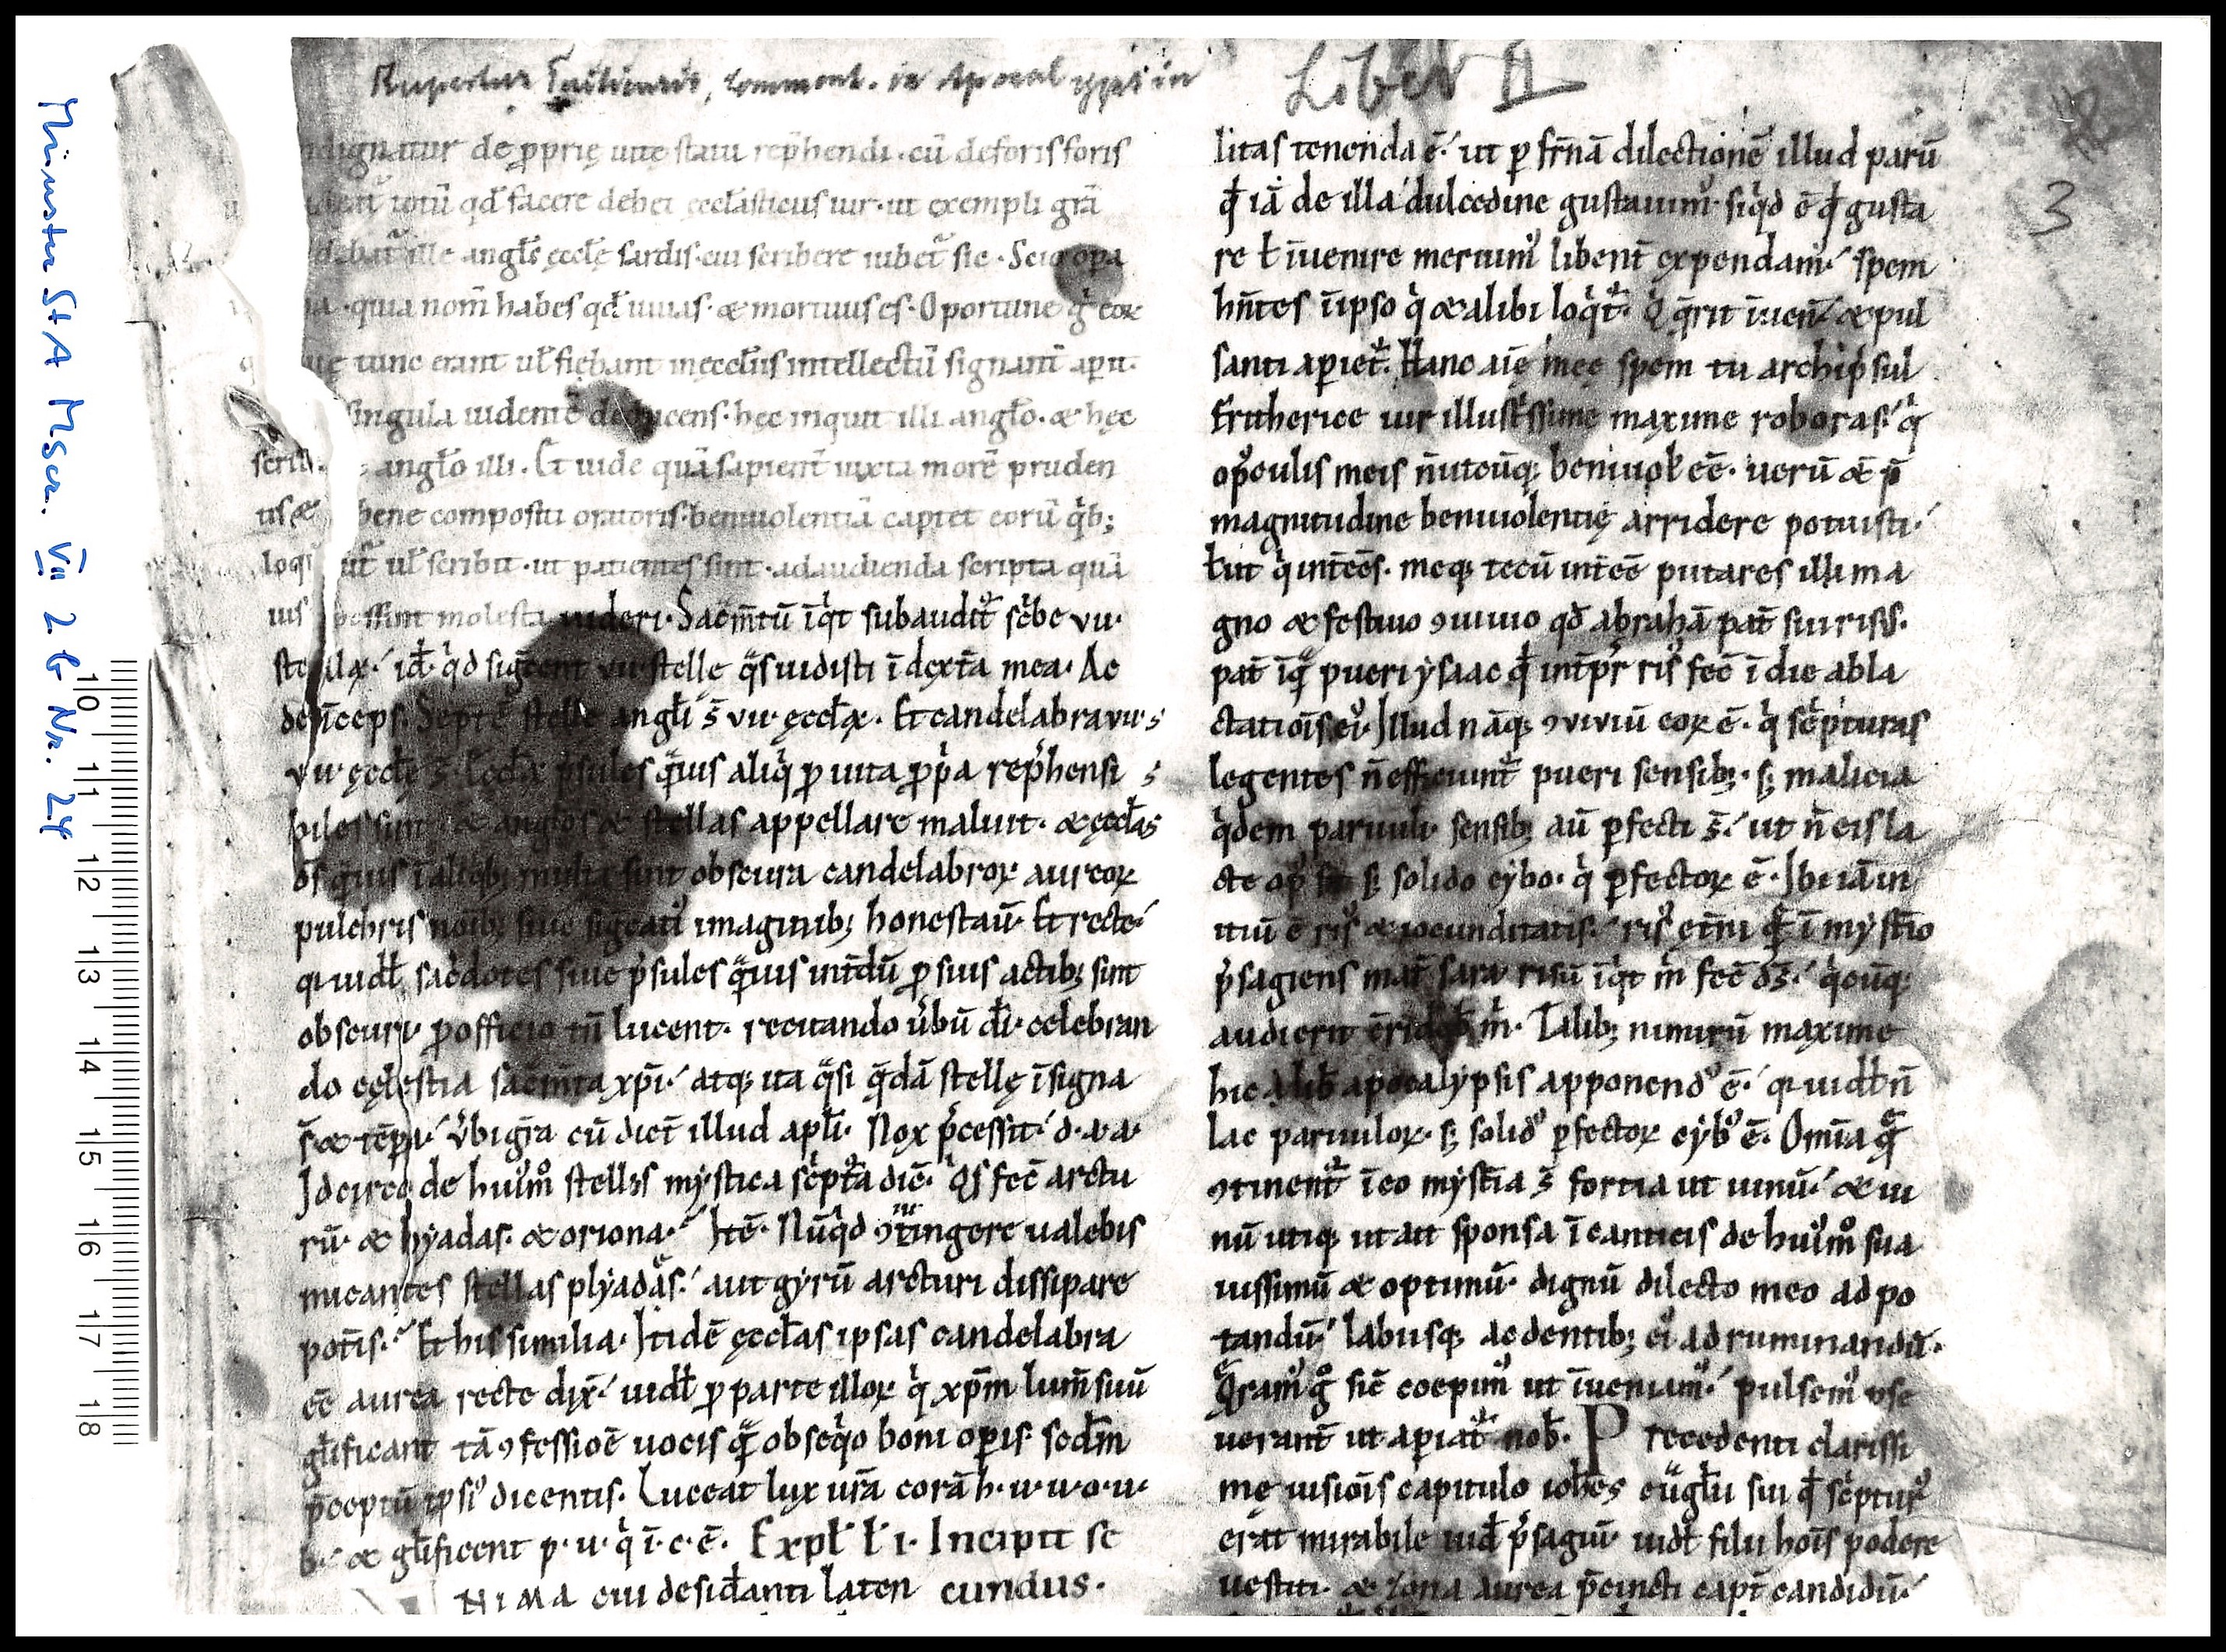 Rupertus Tuitiensis, Comment. in Apocalypsin
Liber II
3
Münster StA Mscr. VII 2 G Nr. 24
10 11 12 13 14 15 16 17 18
de ꝓprię uitę statu rep̄hendi · cū deforis foris
totū qd̄ facere debet ęcclasticus uir · ut exempli gr̄a
ille angl̄s ęccl̄ę sardis · cui scribere iubet᷑ sic · Scio opa
quia nom̄ habes qd̄ uiuas · & mortuus es · Oportune gͦ eoꝝ
tunc erant ul̄ fiebant in ęccl̄iis intellectū signant̄ apit·
singula uidentē deducens · hęc inquit illi angl̄o · & hęc
angl̄o illi · Et uide quā sapient̄ iuxta morē pruden
tis & bene compositi oratoris · beniuolentiā capiet eorū qͥb;
ul̄ scribit · ut patientes sint · ad audienda scripta quā
uis possint molesta uideri · Sacm̄tū īqͥt subaudit᷑ scͥbe vii·
stellę ᷓqs uidisti ī dext̄a mea · Ac
deīceps · Septē stellę angl̄i s̄ vii · ęccl̄aꝝ · Et candelabra vii · s
vii ęccl̄ę s̄ · Eccl̄aꝝ p̄sules qͣuis aliqͥ ꝓ uita ꝓpͥa rep̄hensi
biles sunt & angl̄os & stellas appellare maluit · & ęccl̄as
qͣuis ī aliqͥb; multa sint obscura candelabroꝝ aureoꝝ
pulchris noīb; siue imaginib; honestauit · Et recte·
qꝛ uidl̄ sac̄dotes siue p̄sules qͣuis int̄dū ꝓ suis actib; sint
obscuri · ꝓ officio tn̄ lucent · recitando ūbū dī · celebran
do cęlestia sac̄m̄ta xp̄i · atqꝫ ita qͣsi qͣdā stellę ī signa
s̄ & tēpa · v̄bi gͣa cū dic̄t illud apl̄i · Nox p̄cessit · d · a · a ·
Idcirco de huiͥmͦ stellis mystica scͥpt᷑a dic̄ · Qͥs fec̄ arctu
rū · & hyadas · & oriona · Itē · Nūqͥd ꝯt̄ingere ualebis
micantes stellas plyadas · aut gyrū arcturi dissipare
pot̄is · Et his similia · Itidē ęccl̄as ipsas candelabra
eē aurea recte dix̄ · uidl̄ ꝓ parte illoꝝ qͥ xp̄m lum̄ suū
gl̄ificant tā ꝯfessioē uocis qͣ obseqͥo boni opis · sedm̄
p̄ceptū ipsiꝰ dicentis · Luceat lux ur̄a corā h · u · u · o · u ·
b · & gl̄ificent p · u · qͥ ī · c · ē · Expl̄ l̄ · i · Incipit se
NIMA cui desid̄anti laten cundus ·
litas tenenda ē · ut p fr̄nā dilectionē illud parū
qd̄ iā de illa dulcedine gustauimꝰ · siqͥd ē qd̄ gusta
re l̄ īuenire meruimꝰ libent̄ expendam · spem
hn̄tes ī ipso qͥ & alibi loqͥt᷑ · Qͥ qͣrit īuen̄ · & pul
santi apiet᷑ · Hanc aīę meę spem tu archip̄sul
Frutherice uir illustͥssime maxime roboras · qͥ
opͦculis meis n̄ utcūqꝫ beniuol̄ eē · uerū & p̄
magnitudine beniuolentię arridere potuisti ·
l̄ut qͥ int̄ees · meqꝫ tecū int̄eē putares illi ma
gno & festiuo ꝯuiuio qd̄ abrahā pat̄ sui risꝰ ·
pat̄ īqͣ pueri ysaac qd̄ int̄pr̄ risꝰ fec̄ ī die abla
ctatiōis eiꝰ · Illud nāqꝫ ꝯviviū eoꝝ ē · qͥ scͥpturas
legentes n̄ efficiunt᷑ pueri sensib; · sꝫ malicia
qͥdem paruuli · sensib; aū pfecti s̄ · ut n̄ eis la
cte opꝰ sit sꝫ solido cybo · qͥ pfectoꝝ ē · Ibi iā in
itiū ē risꝰ & iocunditatis · risꝰ etn̄i qd̄ ī myst̄io
p̄sagiens mat̄ sara risū īqͥt m̄ fec̄ ds̄ · qͥcūqꝫ
audierit m̄ · Talib; nimirū maxime
hic alib apocalypsis apponendꝰ ē · qꝛ uidl̄ n̄
lac paruuloꝝ · sꝫ solidꝰ pfectoꝝ cybꝰ ē · Omīa qͣ
ꝯtinent᷑ ī eo myst̄ia s̄ fortia ut uinū · & ui
nū utiqꝫ ut ait sponsa ī canticis de huiͥmͦ sua
uissimū & optimū · dignū dilecto meo ad po
tandū · labiisqꝫ ac dentib; eiꝰ ad ruminandū ·
Qͣramꝰ gͦ sic̄ coepimꝰ ut īueniamꝰ · pulsemꝰ use
uerant̄ ut apiat᷑ nob̄ · Precedenti clarissi
mę uisiōis capitulo ioh̄es eūgl̄ii sui qd̄ scͥpturꝰ
erat mirabile uid̄ p̄sagiū · uidl̄ filii hoīs podere
uestiti · & zona aurea p̄cincti capt̄ candidū ·